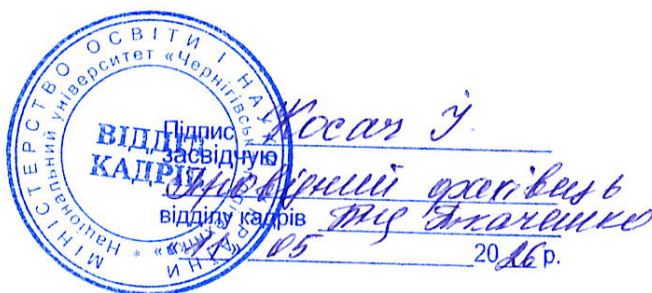 МІНІСТЕРСТВО ОСВІТИ І НАУКИ
Національний університет «Чернігівськ
ВІДДІЛ
КАДРІВ
Підпис Косач І.
засвідчую
Провідний фахівець
відділу кадрів Ткаченко
05 2026 р.